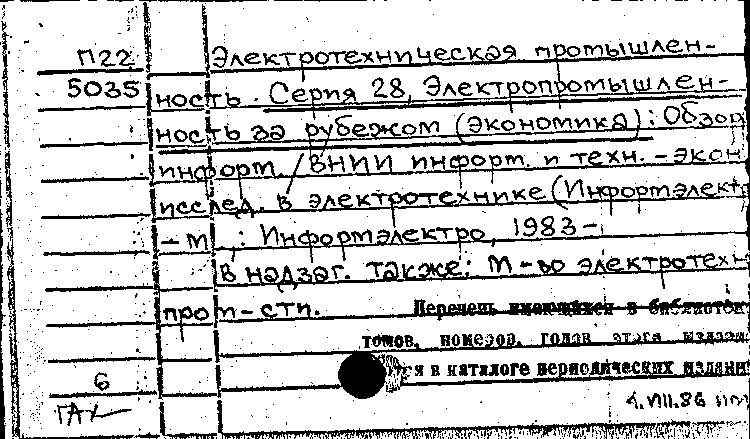 П22 Электротехническая промышлен-
5035 ность. Серия 28, Электропромышлен-
ность за рубежом (экономика): Обзор
информ. / ВНИИ информ. и техн.-экон
исслед. в электротехнике (Информэлект
-М.: Информэлектро, 1983-
В надзаг. также: М-во электротехн
пром-сти. Перечень имеющихся в библиотек
томов, номеров, годов этого издани
ся в каталоге периодических издани
6
4.VII.86